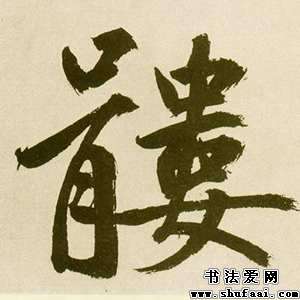 髏
书法爱网
www.shufaai.com